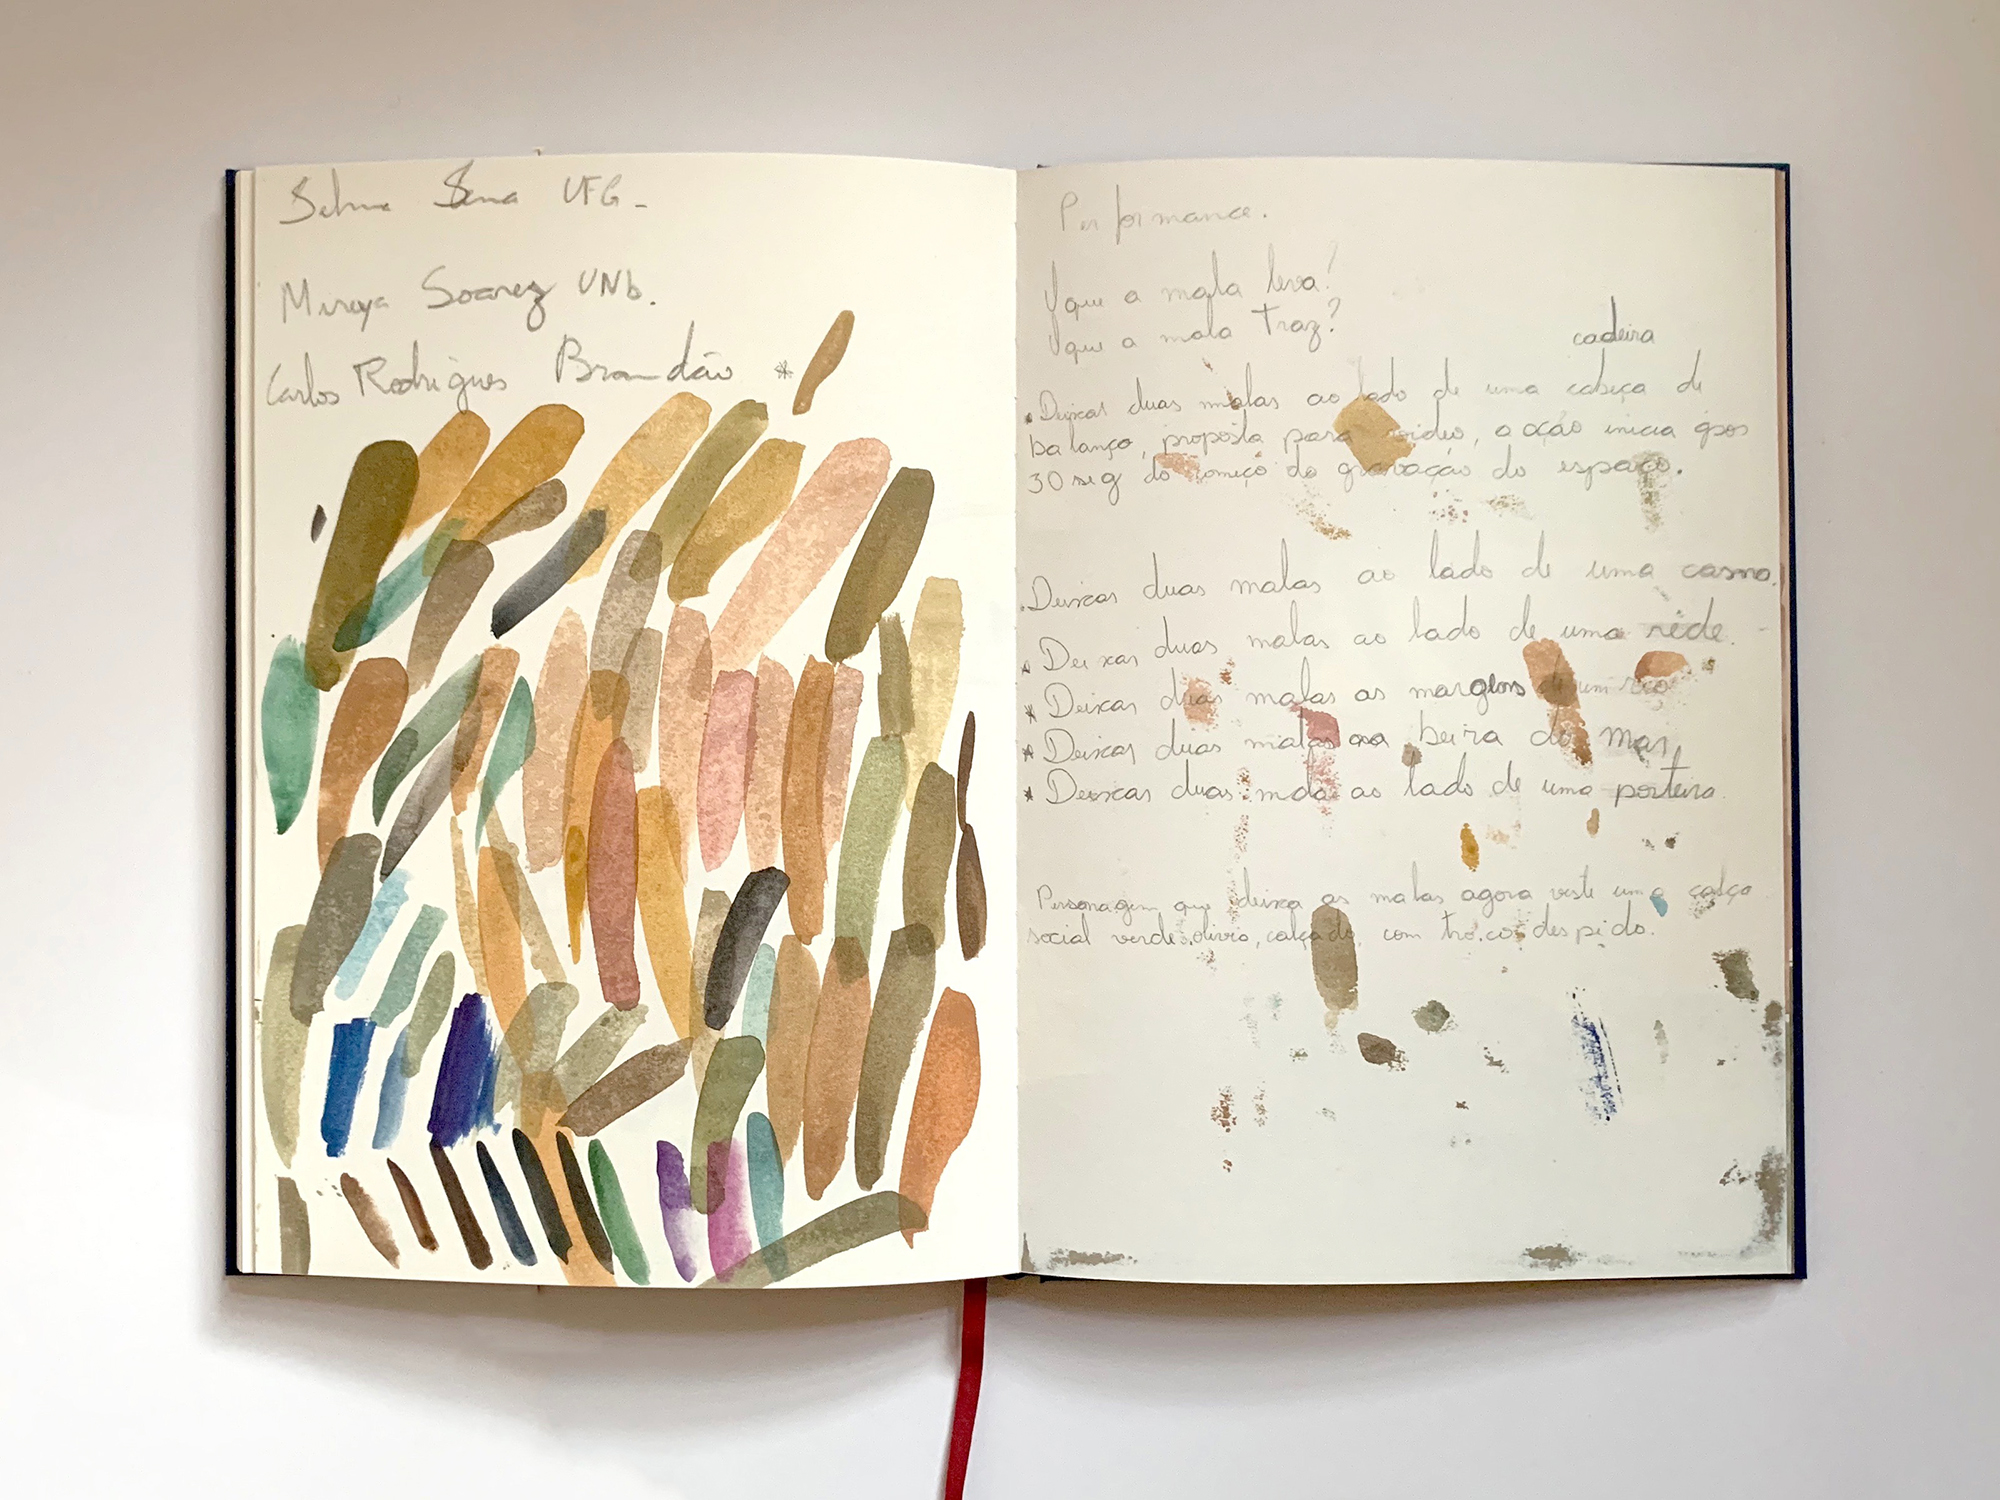 Selma Sena UFG -
Mireya Soarez UNb.
Carlos Rodrigues Brandão *
Performance.
O que a mala leva?
O que a mala traz?
cadeira
. Deixar duas malas ao lado de uma cabeça de
balanço, proposta para vídeo, a ação inicia após
30 seg do começo da gravação do espaço.
. Deixar duas malas ao lado de uma
* Deixar duas malas ao lado de uma rede.
* Deixar duas malas as margens de um rio
* Deixar duas malas na beira do mar,
* Deixar duas malas ao lado de uma porteira.
Personagem que deixa as malas agora veste uma calça
social verde oliva, calçado, com tronco despido.